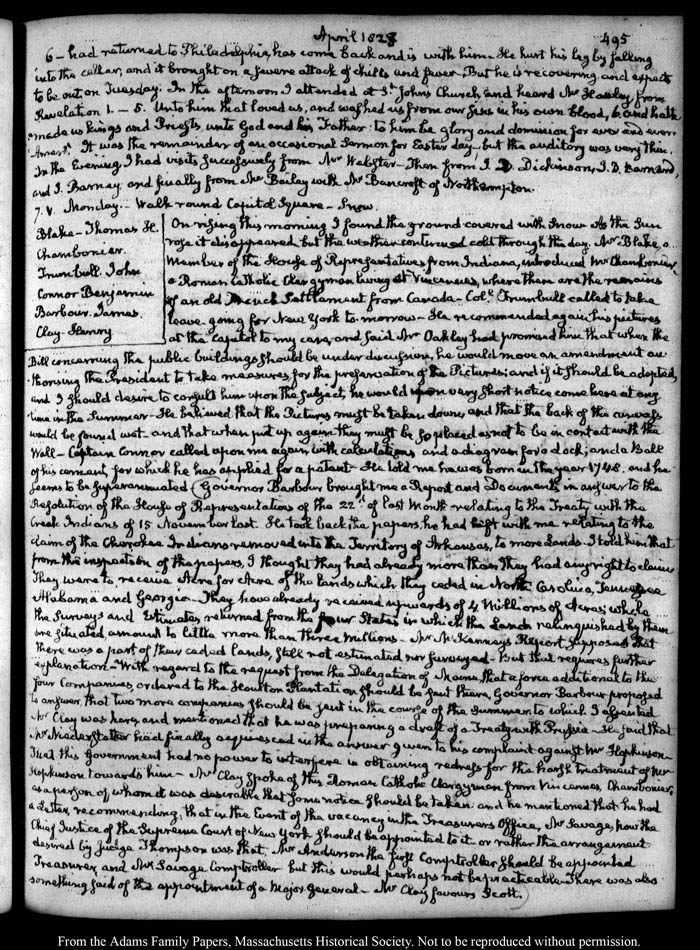 April 1828
495
6 - had returned to Philadelphia, has come back and is with him. He hurt his leg by falling
into the cellar, and it brought on a severe attack of chills and fever. But he is recovering and expects
to be out on Tuesday. In the afternoon I attended at St. Johns Church, and heard Mr Hawley, from
Revelation 1. - 5. Unto him that loved us, and washed us from our sins in his own blood, 6. and hath
"made us kings and Priests, unto God and his Father: to him be glory and dominion for ever and ever.
"Amen". It was the remainder of an occasional Sermon for Easter day, but the auditory was very thin.
In the Evening I had visits successively from Mr Webster - Then from J. D. Dickinson, J. D. Barnard,
and J. Barney, and finally from Mr Bailey with Mr Bancroft of Northampton.
7. V. Monday. Walk round Capitol Square - Snow.
Blake - Thomas H.
Chambonier.
Trumbull. John
Connor Benjamin
Barbour. James.
Clay. Henry
On rising this morning I found the ground covered with snow. As the Sun
rose it disappeared, but the weather continued cold through the day. Mr Blake, a
Member of the House of Representatives from Indiana, introduced Mr Chambonier,
a Roman Catholic Clergyman living at Vincennes, where there are the remains
of an old French Settlement from Canada - Coll. Trumbull called to take
leave, going for New York to-morrow - He recommended again his pictures
at the Capitol to my care, and said Mr Oakley had promised him that when the
Bill concerning the public buildings should be under discussion, he would move an amendment au-
thorising the President to take measures for the preservation of the Pictures; and if it should be adopted,
and I should desire to consult him upon the subject, he would upon very short notice come here at any
time in the Summer - He believed that the Pictures must be taken down, and that the back of the canvass
would be found wet - and that when put up again they must be so placed as not to be in contact with the
Wall - Captain Connor called upon me again with calculations and a diagram for a dock; and a Ball
of his cement, for which he has applied for a patent - He told me he was born in the year 1748. and he
seems to be superannuated. Governor Barbour brought me a Report and Documents in answer to the
Resolution of the House of Representatives of the 22d of last Month relating to the Treaty with the
Creek Indians of 15 November last. He took back the papers he had left with me relating to the
claim of the Cherokee Indians removed into the Territory of Arkansas, to more Lands. I told him that
from the inspection of the papers, I thought they had already more than they had any right to claim
They were to receive Acre for Acre of the lands which they ceded in North Carolina, Tennessee
Alabama and Georgia - They have already received upwards of 4 Millions of Acres; while
the Surveys and Estimates returned from the four States in which the Lands relinquished by them
are situated, amount to little more than three millions - Mr McKenney's Report supposes that
there was a part of their ceded lands, still not estimated nor surveyed - But this requires further
explanation - With regard to the request from the Delegation of Maine, that a force additional to the
four Companies, ordered to the Houlton Plantation should be sent there, Governor Barbour proposed
to answer, that two more companies should be sent in the course of the Summer to which I assented
Mr Clay was here, and mentioned that he was preparing a draft of a Treaty with Prussia - He said that
Mr Niederstetter had finally acquiesced in the answer given to his complaint against Mr Hopkinson -
That this Government had no power to interfere in obtaining redress for the harsh treatment of Mr
Hopkinson towards him - Mr Clay spoke of this Roman Catholic Clergyman from Vincennes, Chambonier,
as a person of whom it was desirable that some notice should be taken. and he mentioned that he had
a Letter, recommending, that in the Event of the vacancy in the Treasurer's Office, Mr Savage, now the
Chief Justice of the Supreme Court of New York should be appointed to it. or rather the arrangement
desired by Judge Thompson was that Mr Anderson the first Comptroller should be appointed
Treasurer, and Mr Savage Comptroller but this would perhaps not be practicable - There was also
something said of the appointment of a Major General - Mr Clay favours Scott.
From the Adams Family Papers, Massachusetts Historical Society. Not to be reproduced without permission.